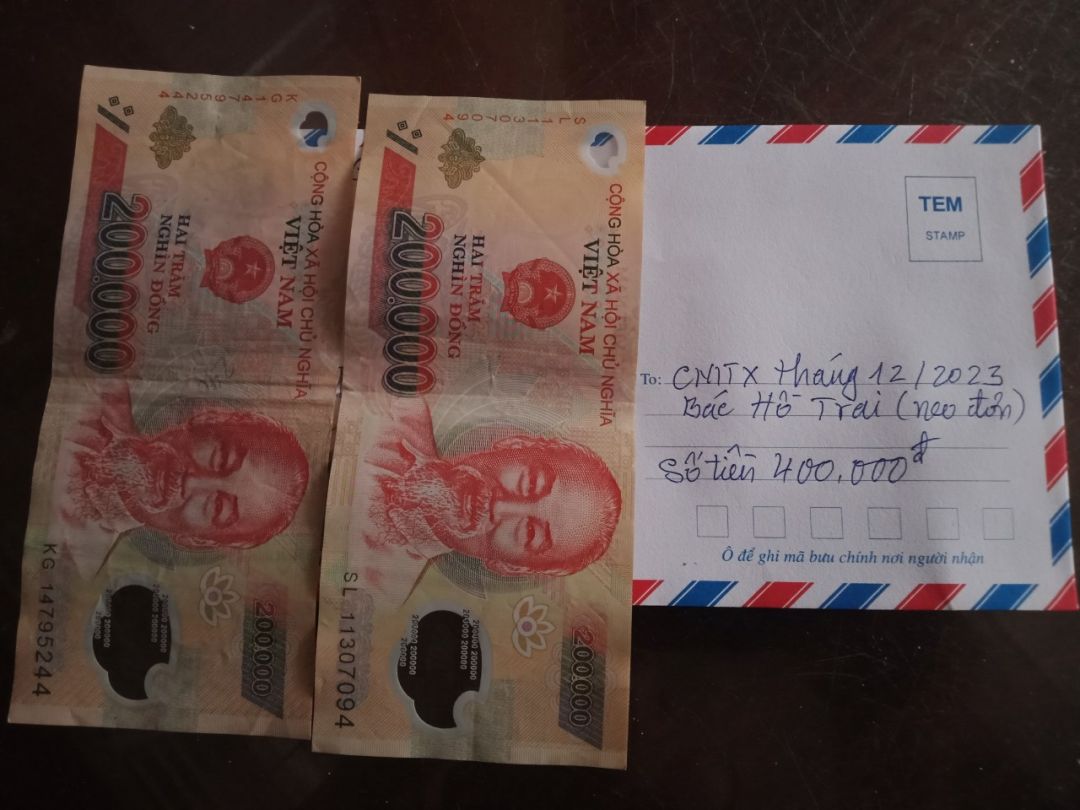 KG 14795244
CỘNG HÒA XÃ HỘI CHỦ NGHĨA
VIỆT NAM
HAI TRĂM
NGHÌN ĐỒNG
200.000
200.000
200000 200000
200000 200000
200000
KG 14795244
SL 11307094
CỘNG HÒA XÃ HỘI CHỦ NGHĨA
VIỆT NAM
HAI TRĂM
NGHÌN ĐỒNG
200.000
200.000
200000 200000
200000 200000
200000
SL 11307094
TEM
STAMP
To: CNTTX tháng 12/2023
Bác Hồ Trai (neo đơn)
Số tiền 400.000đ
Ô để ghi mã bưu chính nơi người nhận